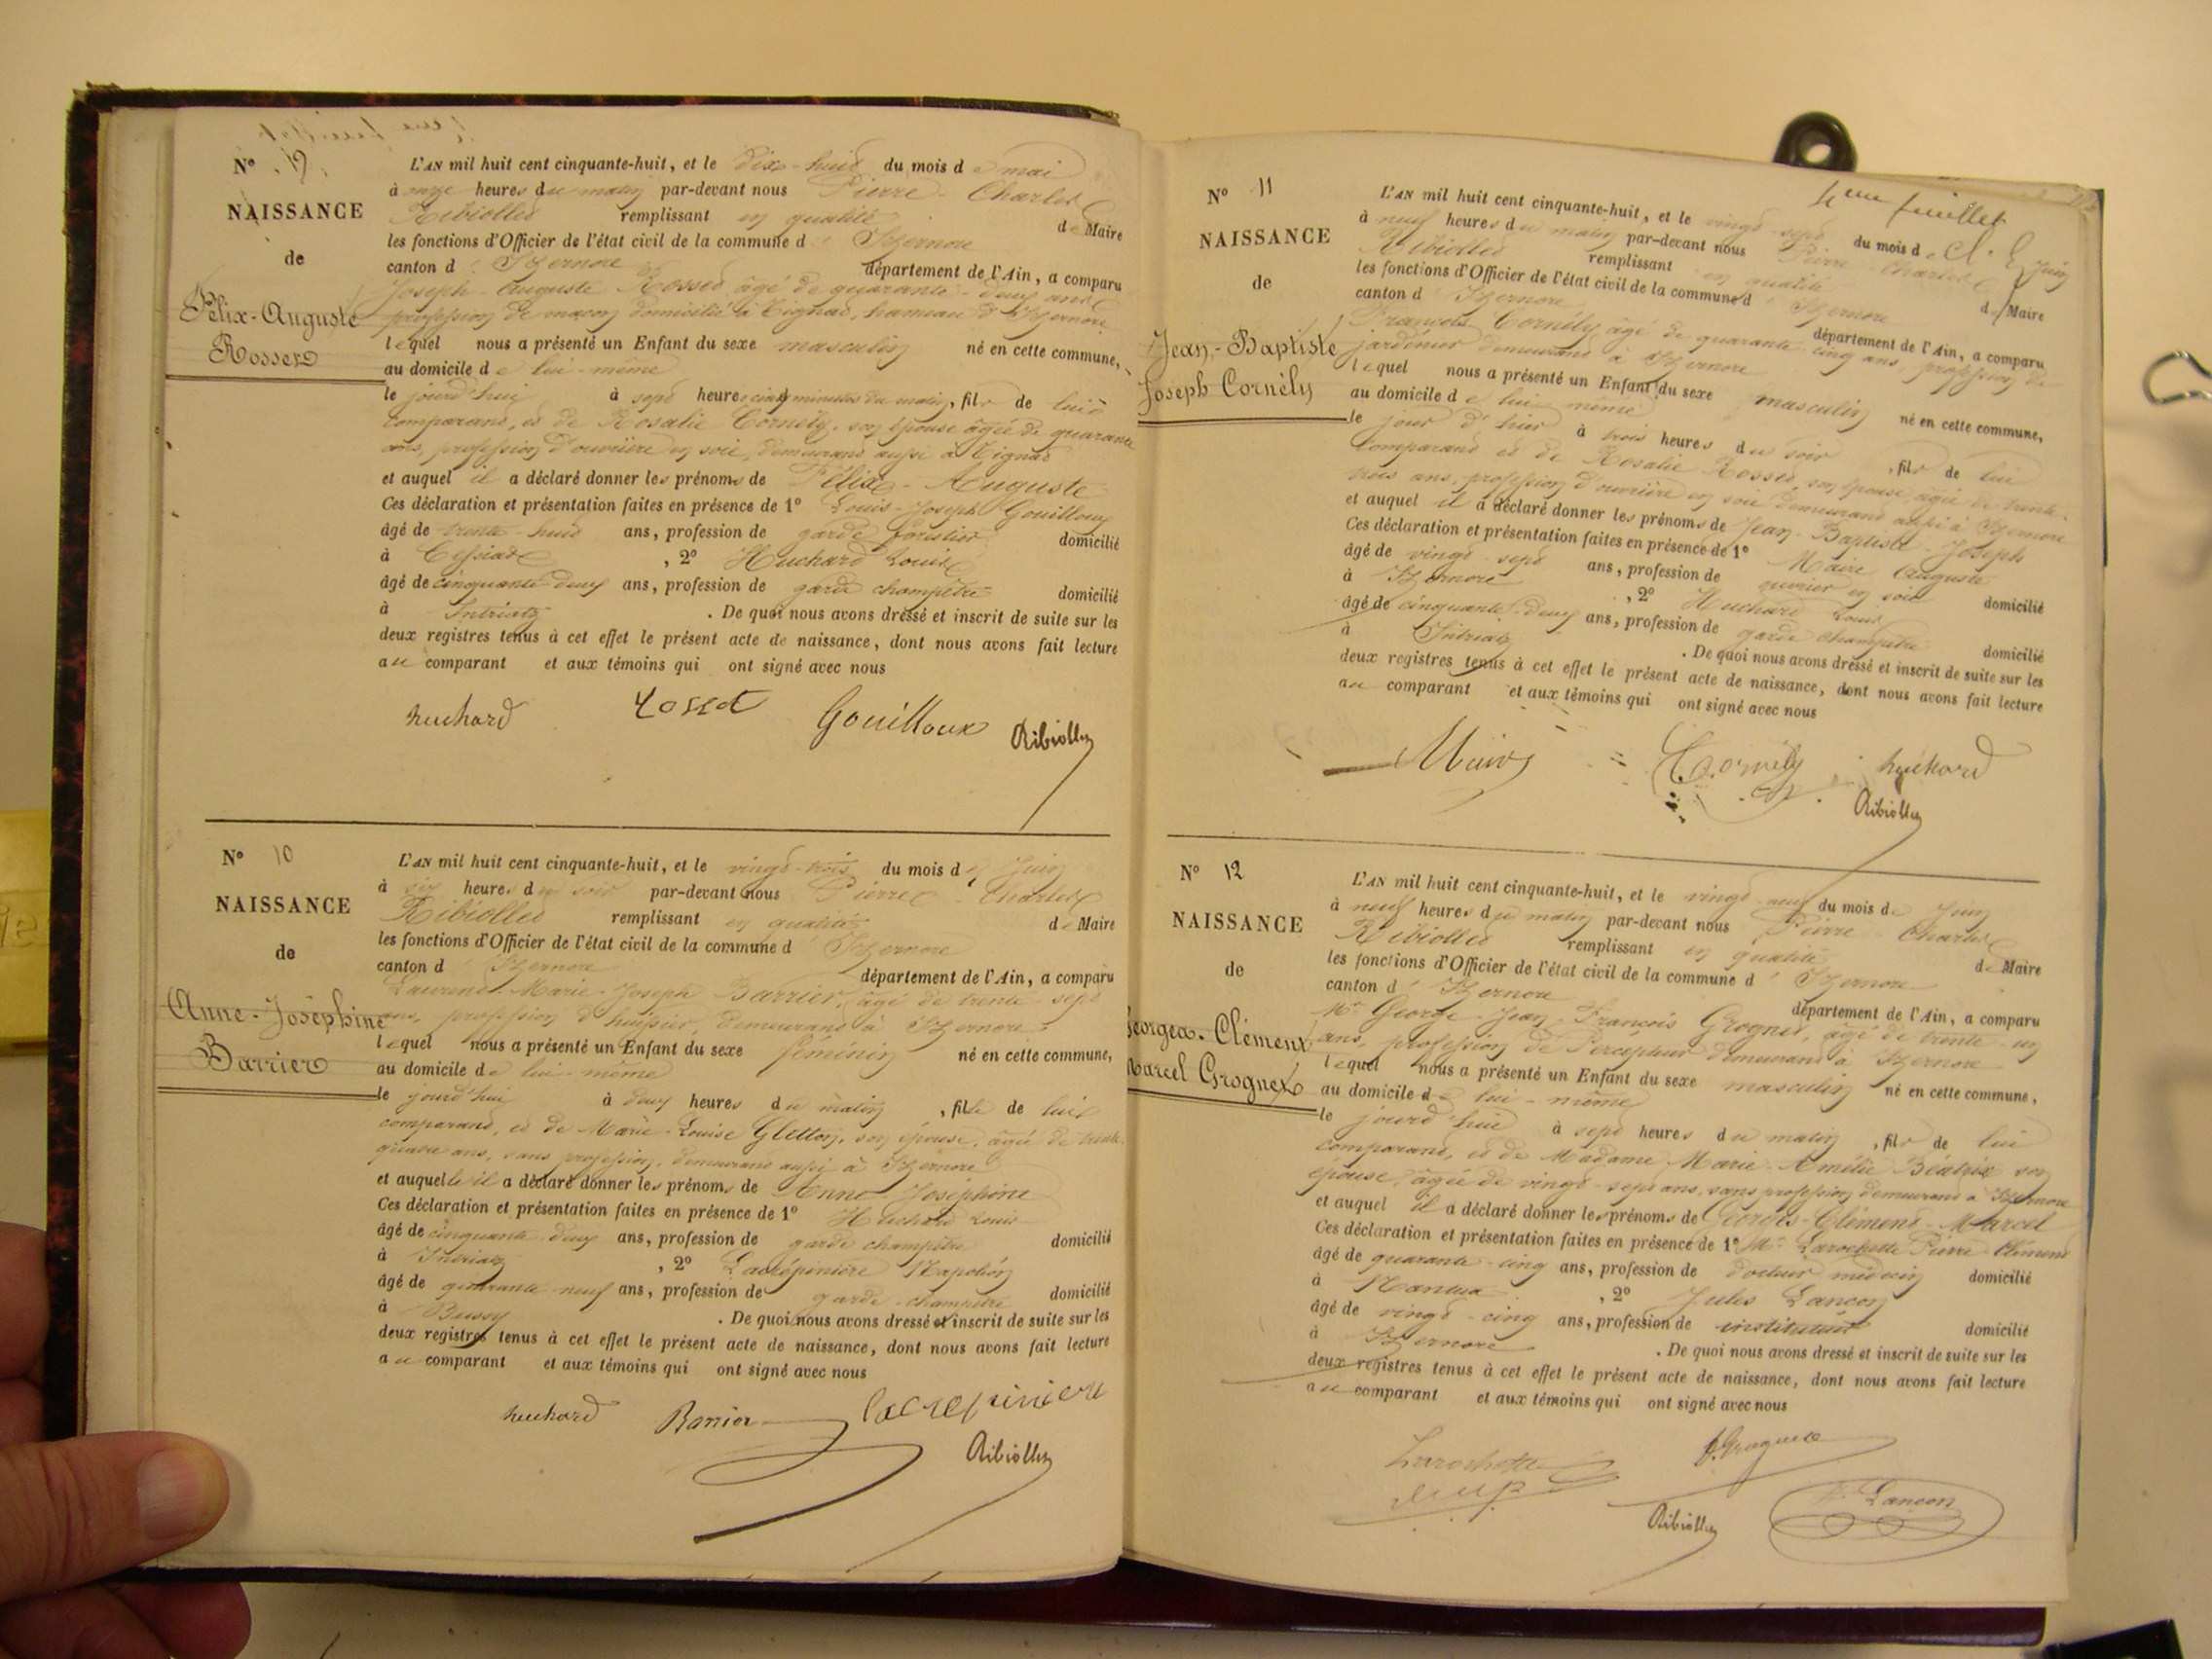 N° 9.
NAISSANCE
de
Félix-Auguste
Rosset
L'AN mil huit cent cinquante-huit, et le dix-huit du mois de mai
à onze heures du matin par-devant nous Pierre-Charles
Ribiollet remplissant en qualité de Maire
les fonctions d'Officier de l'état civil de la commune d'Izernore
canton d'Izernore département de l'Ain, a comparu
Joseph-Auguste Rosset âgé de quarante-deux ans
profession de maçon domicilié à Tignat, hameau d'Izernore
lequel nous a présenté un Enfant du sexe masculin né en cette commune,
au domicile de lui-même
le jourd'hui à sept heures cinq minutes du matin, fils de lui
comparant, et de Rosalie Cornély, son épouse âgée de quarante
ans, profession d'ouvrière en soie, demeurant aussi à Tignat
et auquel il a déclaré donner les prénoms de Félix-Auguste
Ces déclaration et présentation faites en présence de 1° Louis-Joseph Gouilloux
âgé de trente-huit ans, profession de garde forestier domicilié
à Cessiat, 2° Huchard Louis
âgé de cinquante-deux ans, profession de garde champêtre domicilié
à Intriatz. De quoi nous avons dressé et inscrit de suite sur les
deux registres tenus à cet effet le présent acte de naissance, dont nous avons fait lecture
au comparant et aux témoins qui ont signé avec nous
huchard Rosset Gouilloux Ribiollet
N° 10
NAISSANCE
de
Anne-Joséphine
Barrier
L'AN mil huit cent cinquante-huit, et le vingt-trois du mois de Juin
à six heures du soir par-devant nous Pierre-Charles
Ribiollet remplissant en qualité de Maire
les fonctions d'Officier de l'état civil de la commune d'Izernore
canton d'Izernore département de l'Ain, a comparu
Laurent-Marie-Joseph Barrier, âgé de trente-sept
ans, profession d'huissier, demeurant à Izernore
lequel nous a présenté un Enfant du sexe féminin né en cette commune,
au domicile de lui-même
le jourd'hui à deux heures du matin, fille de lui
comparant, et de Marie-Louise Gletton, son épouse, âgée de trente-
quatre ans, sans profession, demeurant aussi à Izernore
et auquelle il a déclaré donner les prénoms de Anne-Joséphine
Ces déclaration et présentation faites en présence de 1° Huchard Louis
âgé de cinquante-deux ans, profession de garde champêtre domicilié
à Intriatz, 2° Lacrépinière Napoléon
âgé de quarante-neuf ans, profession de garde-champêtre domicilié
à Bussy. De quoi nous avons dressé et inscrit de suite sur les
deux registres tenus à cet effet le présent acte de naissance, dont nous avons fait lecture
au comparant et aux témoins qui ont signé avec nous
huchard Barrier lacrepiniere
Ribiollet
4eme feuillet
N° 11
NAISSANCE
de
Jean-Baptiste
Joseph Cornély
L'AN mil huit cent cinquante-huit, et le vingt-sept du mois de Juin
à neuf heures du matin par-devant nous Pierre-Charles
Ribiollet remplissant en qualité de Maire
les fonctions d'Officier de l'état civil de la commune d'Izernore
canton d'Izernore département de l'Ain, a comparu
François Cornély âgé de quarante-cinq ans, profession de
jardinier demeurant à Izernore
lequel nous a présenté un Enfant du sexe masculin né en cette commune,
au domicile de lui même
le jour d'hier à trois heures du soir, fils de lui
comparant et de Rosalie Rosset, son épouse, âgée de trente-
trois ans, profession d'ouvrière en soie demeurant aussi à Izernore
et auquel il a déclaré donner les prénoms de Jean-Baptiste-Joseph
Ces déclaration et présentation faites en présence de 1° Maire Auguste
âgé de vingt-sept ans, profession de ouvrier en soie domicilié
à Izernore, 2° Huchard Louis
âgé de cinquante-deux ans, profession de garde champêtre domicilié
à Intriatz. De quoi nous avons dressé et inscrit de suite sur les
deux registres tenus à cet effet le présent acte de naissance, dont nous avons fait lecture
au comparant et aux témoins qui ont signé avec nous
Cornély huchard
Ribiollet
N° 12
NAISSANCE
de
Georges-Clément
Marcel Grognet
L'AN mil huit cent cinquante-huit, et le vingt-neuf du mois de Juin
à neuf heures du matin par-devant nous Pierre-Charles
Ribiollet remplissant en qualité de Maire
les fonctions d'Officier de l'état civil de la commune d'Izernore
canton d'Izernore département de l'Ain, a comparu
Mr George-Jean-François Grognet, âgé de trente-un
ans, profession de Percepteur demeurant à Izernore
lequel nous a présenté un Enfant du sexe masculin né en cette commune,
au domicile de lui-même
le jourd'hui à sept heures du matin, fils de lui
comparant, et de Madame Marie-Amélie Béatrix son
épouse, âgée de vingt-sept ans, sans profession demeurant à Izernore
et auquel il a déclaré donner les prénoms de Georges-Clément-Marcel
Ces déclaration et présentation faites en présence de 1° Mr Larochette Pierre Clément
âgé de quarante-cinq ans, profession de docteur médecin domicilié
à Nantua, 2° Jules Lançon
âgé de vingt-cinq ans, profession de instituteur domicilié
à Izernore. De quoi nous avons dressé et inscrit de suite sur les
deux registres tenus à cet effet le présent acte de naissance, dont nous avons fait lecture
au comparant et aux témoins qui ont signé avec nous
Larochette Grognet
Ribiollet Lançon